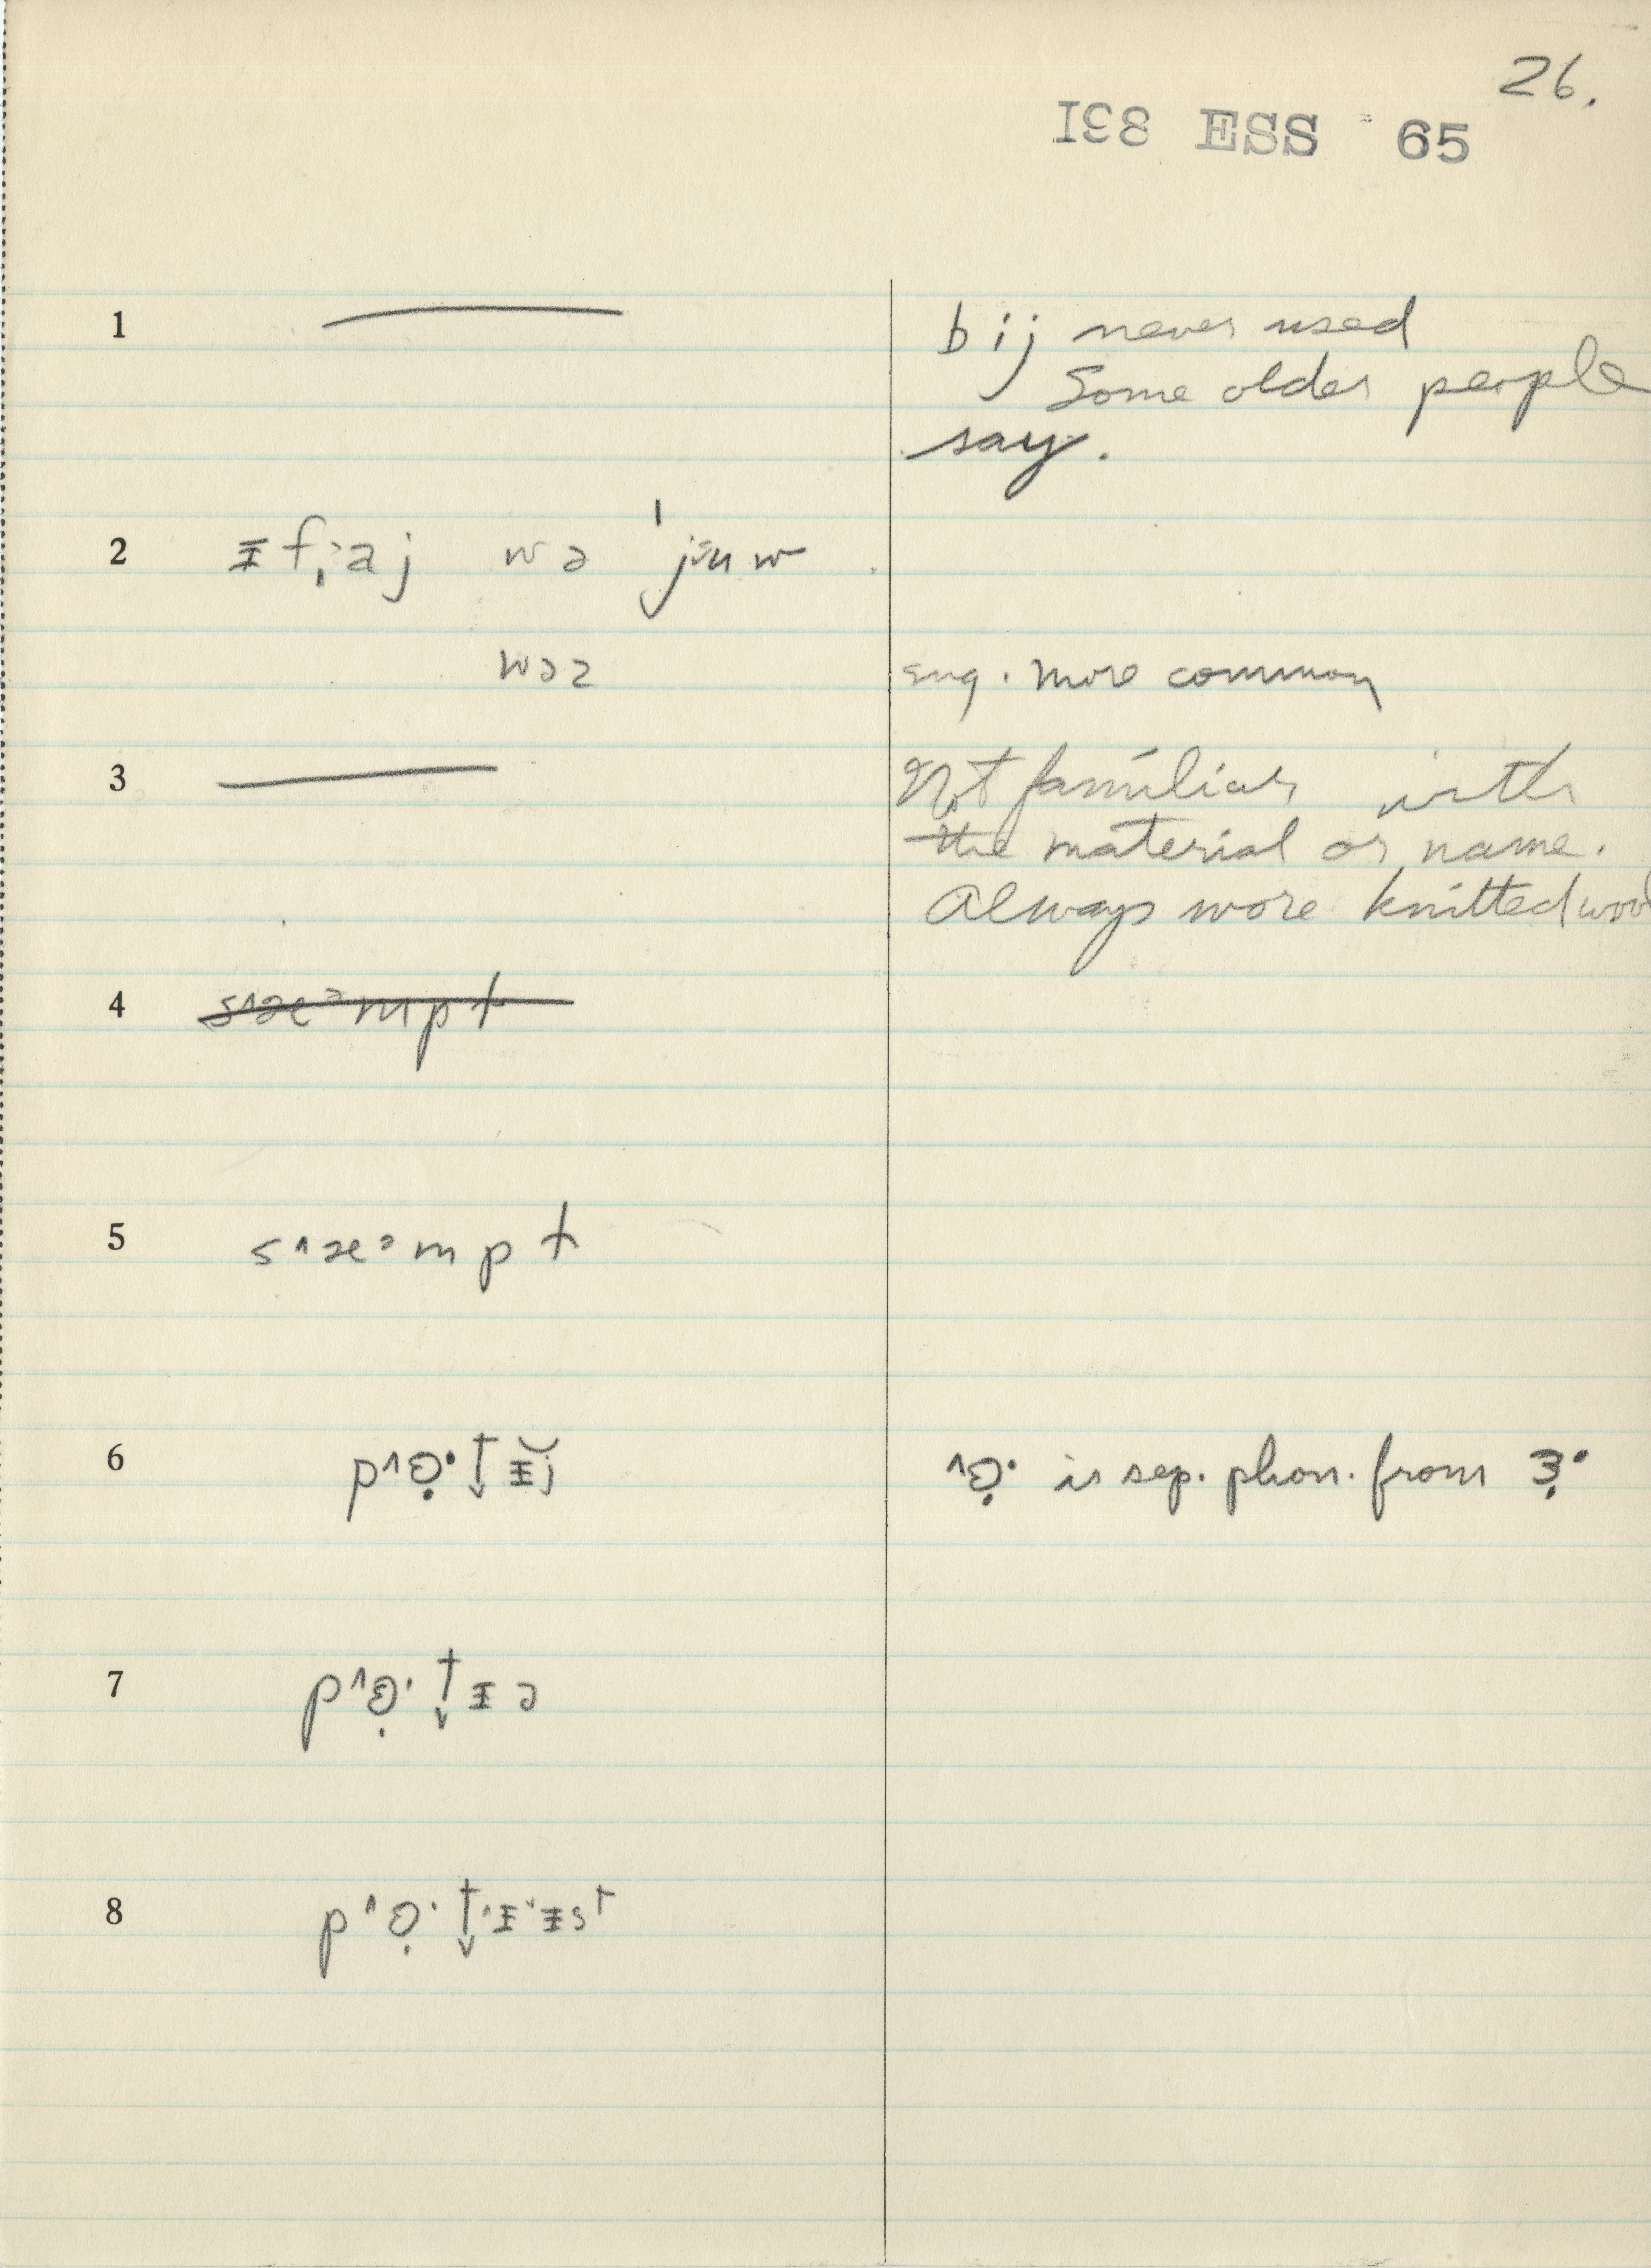 26.
I38 ESS 65
1 —— bij never used
Some older people
say.
2 ᵻf‚˒aj wə ˈjᵻuw
wəz eng. more common
3 —— Not familiar with
the material or name.
Always wore knitted
4 s˄æ˃mpt
5 s˄æ˃mpt
6 p˄ɵ̣· t↓ᵻj ˄ɵ̣· is sep. phon. from ɜ̣·
7 p˄ɵ̣· t↓ᵻə
8 p˄ɵ̣· t↓ᵻᵻst